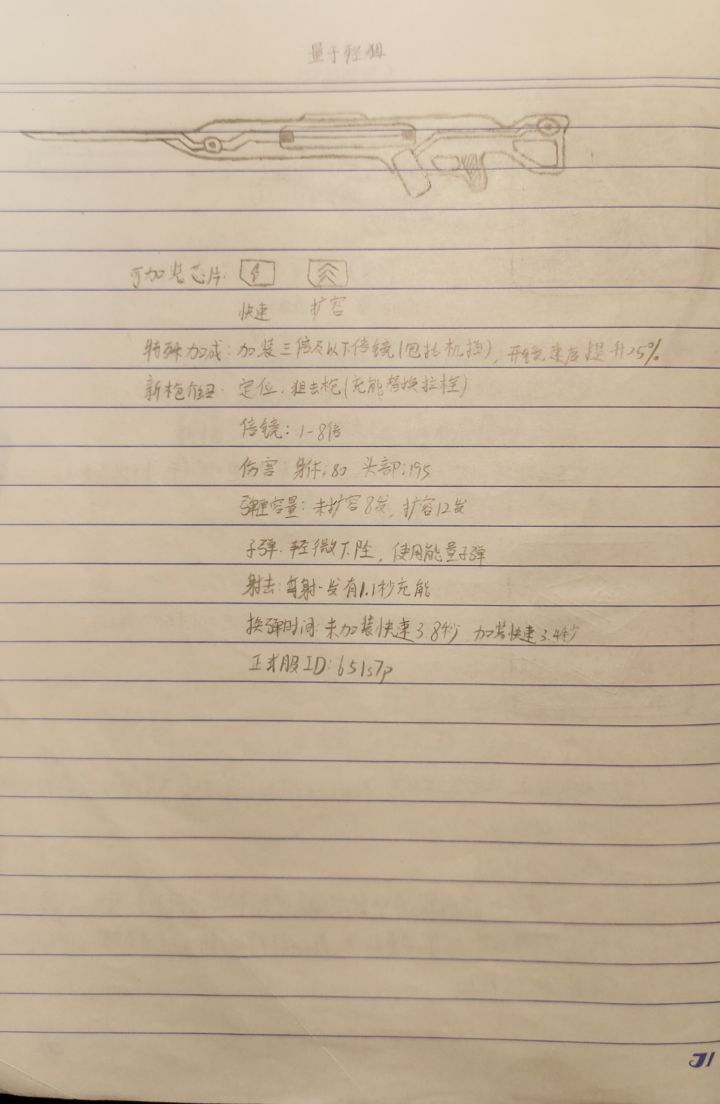 量子轻狙
可加装芯片:
快速 扩容
特殊加成:加装三倍及以下倍镜(包括机瞄),开镜速度提升25%
新枪介绍:定位:狙击枪(充能替换拉栓)
倍镜:1-8倍
伤害 身体:80 头部:195
弹匣容量:未扩容8发,扩容12发
子弹:轻微下坠,使用能量子弹
射击:每射一发有1.1秒充能
换弹时间:未加装快速3.8秒 加装快速3.4秒
正式服ID:651s7p
J1